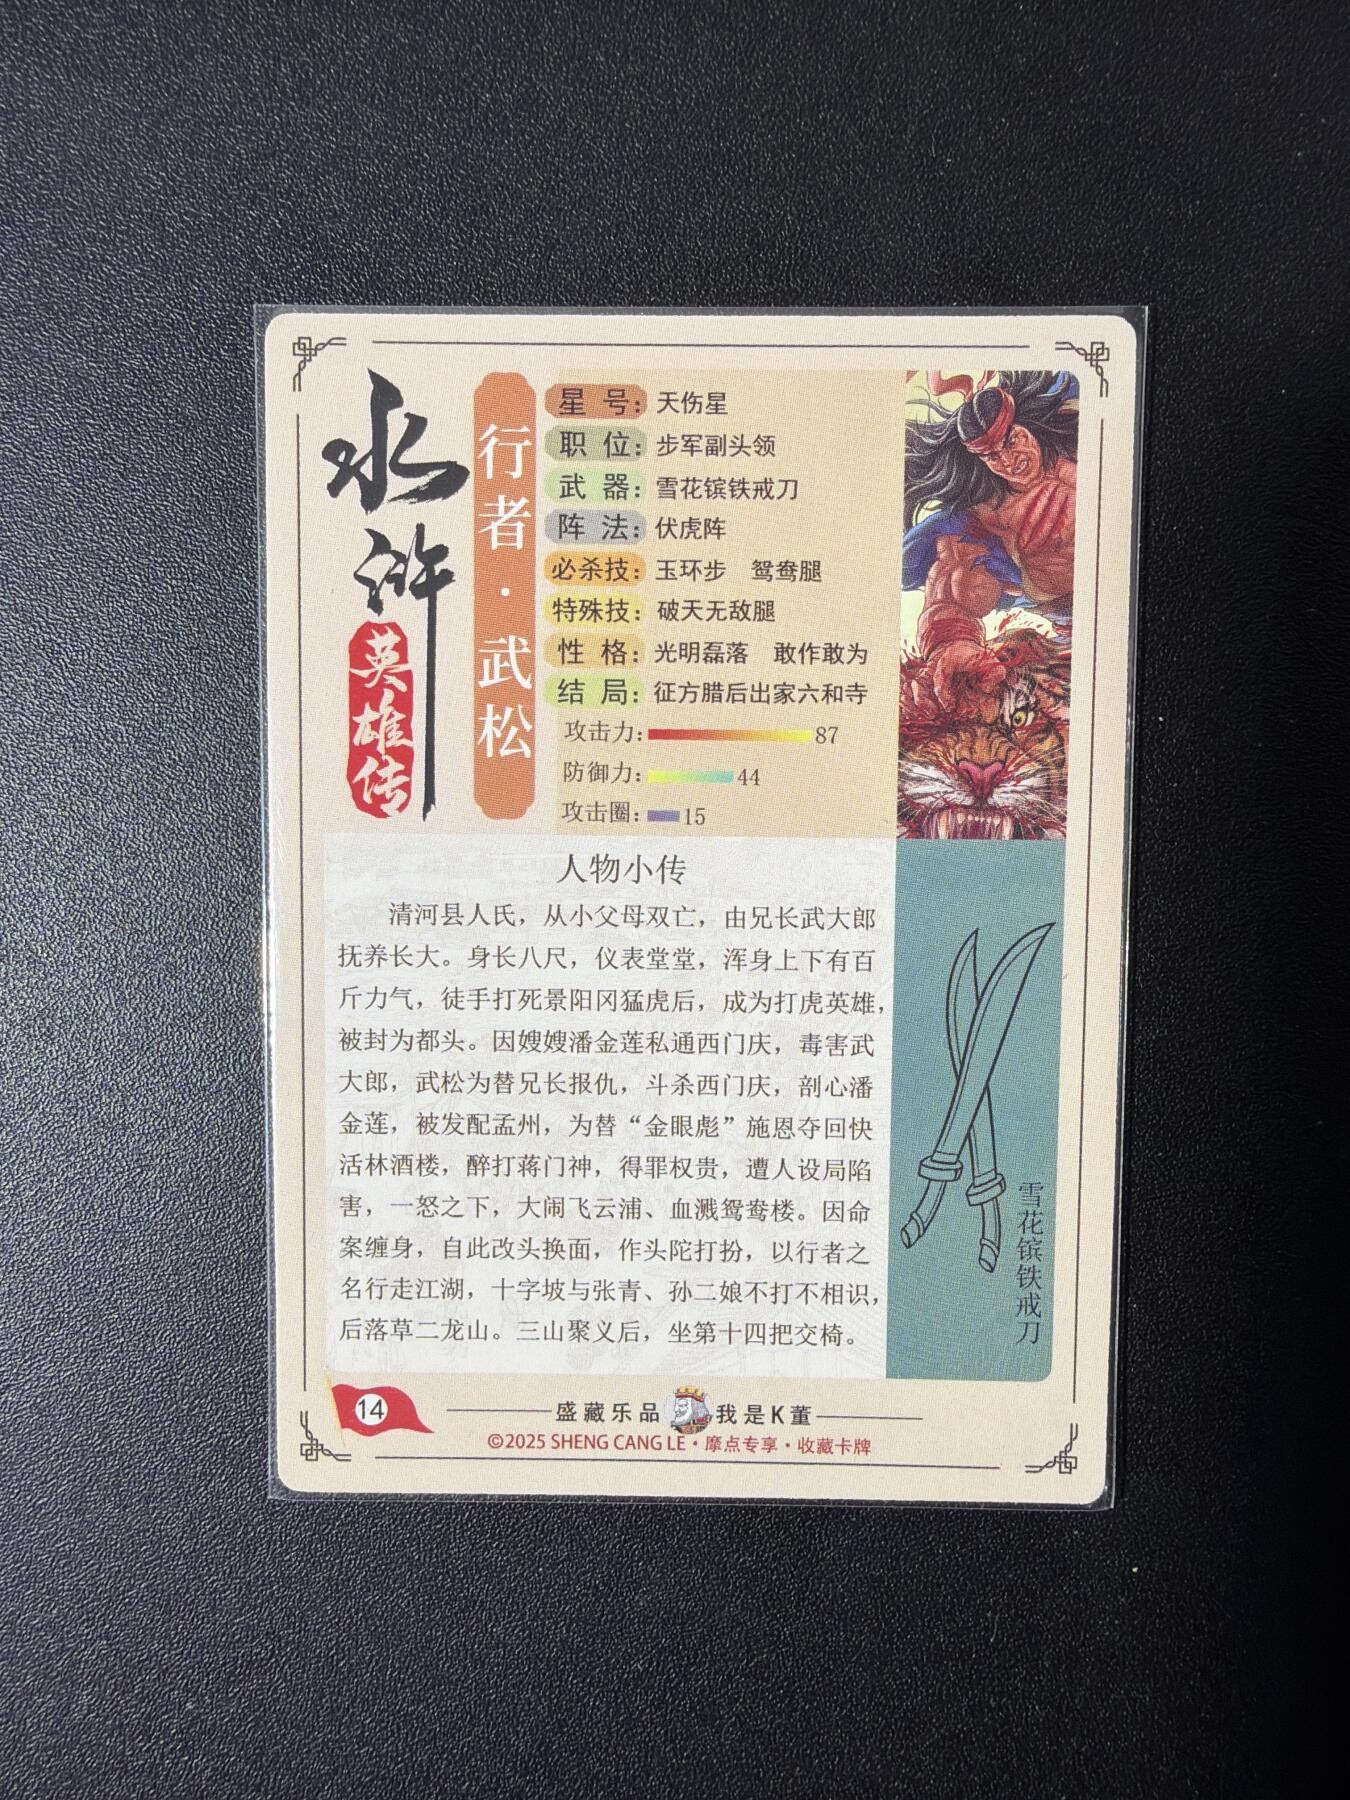 水浒
英雄传
行者·武松
星号：天伤星
职位：步军副头领
武器：雪花镔铁戒刀
阵法：伏虎阵
必杀技：玉环步 鸳鸯腿
特殊技：破天无敌腿
性格：光明磊落 敢作敢为
结局：征方腊后出家六和寺
攻击力：87
防御力：44
攻击圈：15
人物小传
清河县人氏，从小父母双亡，由兄长武大郎
抚养长大。身长八尺，仪表堂堂，浑身上下有百
斤力气，徒手打死景阳冈猛虎后，成为打虎英雄，
被封为都头。因嫂嫂潘金莲私通西门庆，毒害武
大郎，武松为替兄长报仇，斗杀西门庆，剖心潘
金莲，被发配孟州，为替“金眼彪”施恩夺回快
活林酒楼，醉打蒋门神，得罪权贵，遭人设局陷
害，一怒之下，大闹飞云浦、血溅鸳鸯楼。因命
案缠身，自此改头换面，作头陀打扮，以行者之
名行走江湖，十字坡与张青、孙二娘不打不相识，
后落草二龙山。三山聚义后，坐第十四把交椅。
雪花镔铁戒刀
14
盛藏乐品 我是K董
©2025 SHENG CANG LE·摩点专享·收藏卡牌